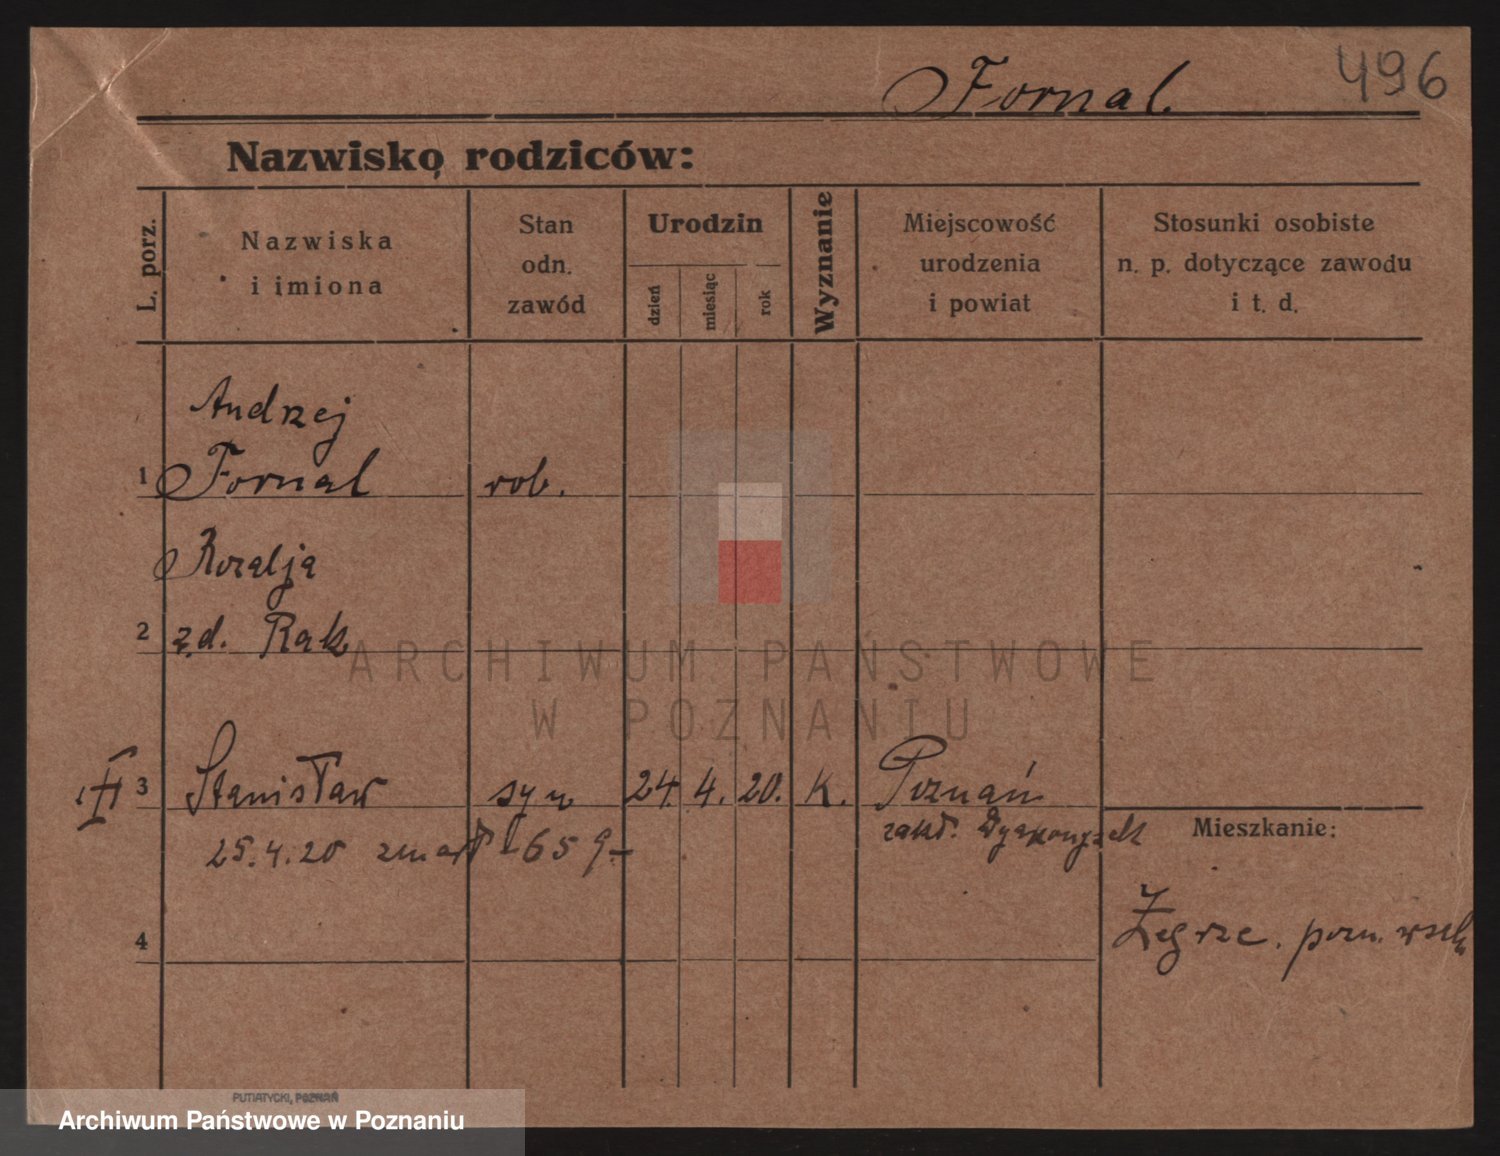 496
Fornal.
Nazwisko rodziców:
L. porz.
Nazwiska
i imiona
Stan
odn.
zawód
Urodzin
dzień
miesiąc
rok
Wyznanie
Miejscowość
urodzenia
i powiat
Stosunki osobiste
n. p. dotyczące zawodu
i t. d.
Andrzej
1 Fornal rob.
Rozalja
2 z.d. Rak
ARCHIWUM PAŃSTWOWE
W POZNANIU
III 3 Stanisław syn 24. 4. 20. K. Poznań
zakł. Dyakonysek
25.4.20 zmarł 659
Mieszkanie:
4
Żegrze. pozn. wsch
PUTIATYCKI, POZNAŃ
Archiwum Państwowe w Poznaniu